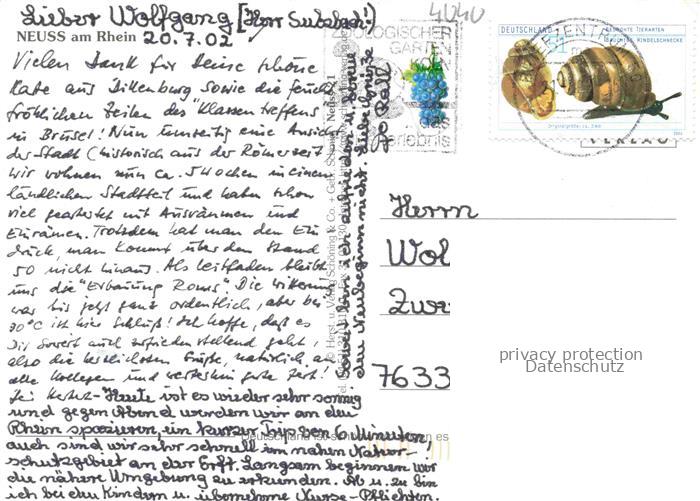 Lieber Wolfgang [Herr Sulzbach!]
NEUSS am Rhein 20.7.02
Vielen Dank für Deine schöne
Karte aus Dillenburg sowie die feucht
fröhlichen Zeilen des "Klassentreffens
in Brüssel! Nun umseitig eine Ansicht
der Stadt (historisch aus der Römerzeit
wir wohnen nun ca. 5 Wochen in einem
ländlichen Stadtteil und haben schon
viel gearbeitet mit Ausräumen und
Einräumen. Trotzdem hat man den Ein
druck, man kommt über den Stand
50 nicht hinaus. Als Leitfaden bleibt
uns die "Erbauung Roms". Die Witterung
war bis jetzt ganz ordentlich, aber bei
30°C ist hier Schluß! Ich hoffe, daß es
Dir soweit auch zufriedenstellend geht,
also die herzlichsten Grüße, natürlich an
alle Kollegen und weiterhin gute Zeit!
Heute ist es wieder sehr sonnig
und gegen Abend werden wir an den
Rhein spazieren, ein kurzer Trip von 6 Minuten
auch sind wir sehr schnell im nahen Natur-
schutzgebiet an der Erft. Langsam beginnen wir
die nähere Umgebung zu erkunden. Ab u. zu bin
ich bei den Kindern u. übernehme Kurse-Pflichten.
Soweit bin ich zufrieden u. bereue
den Neubeginn nicht. Liebe Grüße
© Herst. u. Verlag Schöning & Co. + Gebr. Schmidt
4040
ZOOLOGISCHER
GARTEN
das
Erlebnis
DEUTSCHLAND
51
BEDROHTE TIERARTEN
BAUCHIGE WINDELSCHNECKE
Originalgröße ca. 3 mm
BRIEFZENTRUM
VERLAG
Herrn
Wol
Zur
7633
privacy protection
Datenschutz